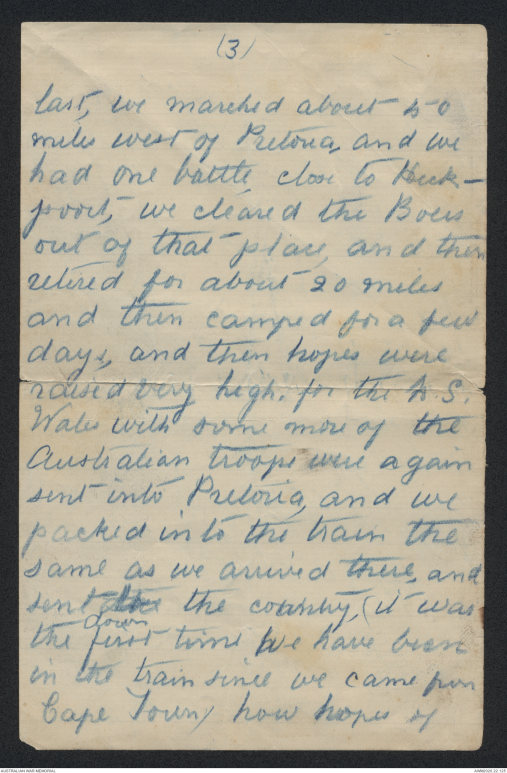 (3)
last, we marched about 50
miles west of Pretoria, and we
had one battle, close to Heck-
poort, we cleared the Boers
out of that place, and then
retired for about 20 miles
and then camped for a few
days, and then hopes were
raised very high. for the N.S.
Wales with some more of the
Australian troops were again
sent into Pretoria, and we
packed into the train the
same as we arrived there, and
sent down the country, (it was
the first time we have been
in the train since we came from
Cape Town) how hopes of
AUSTRALIAN WAR MEMORIAL